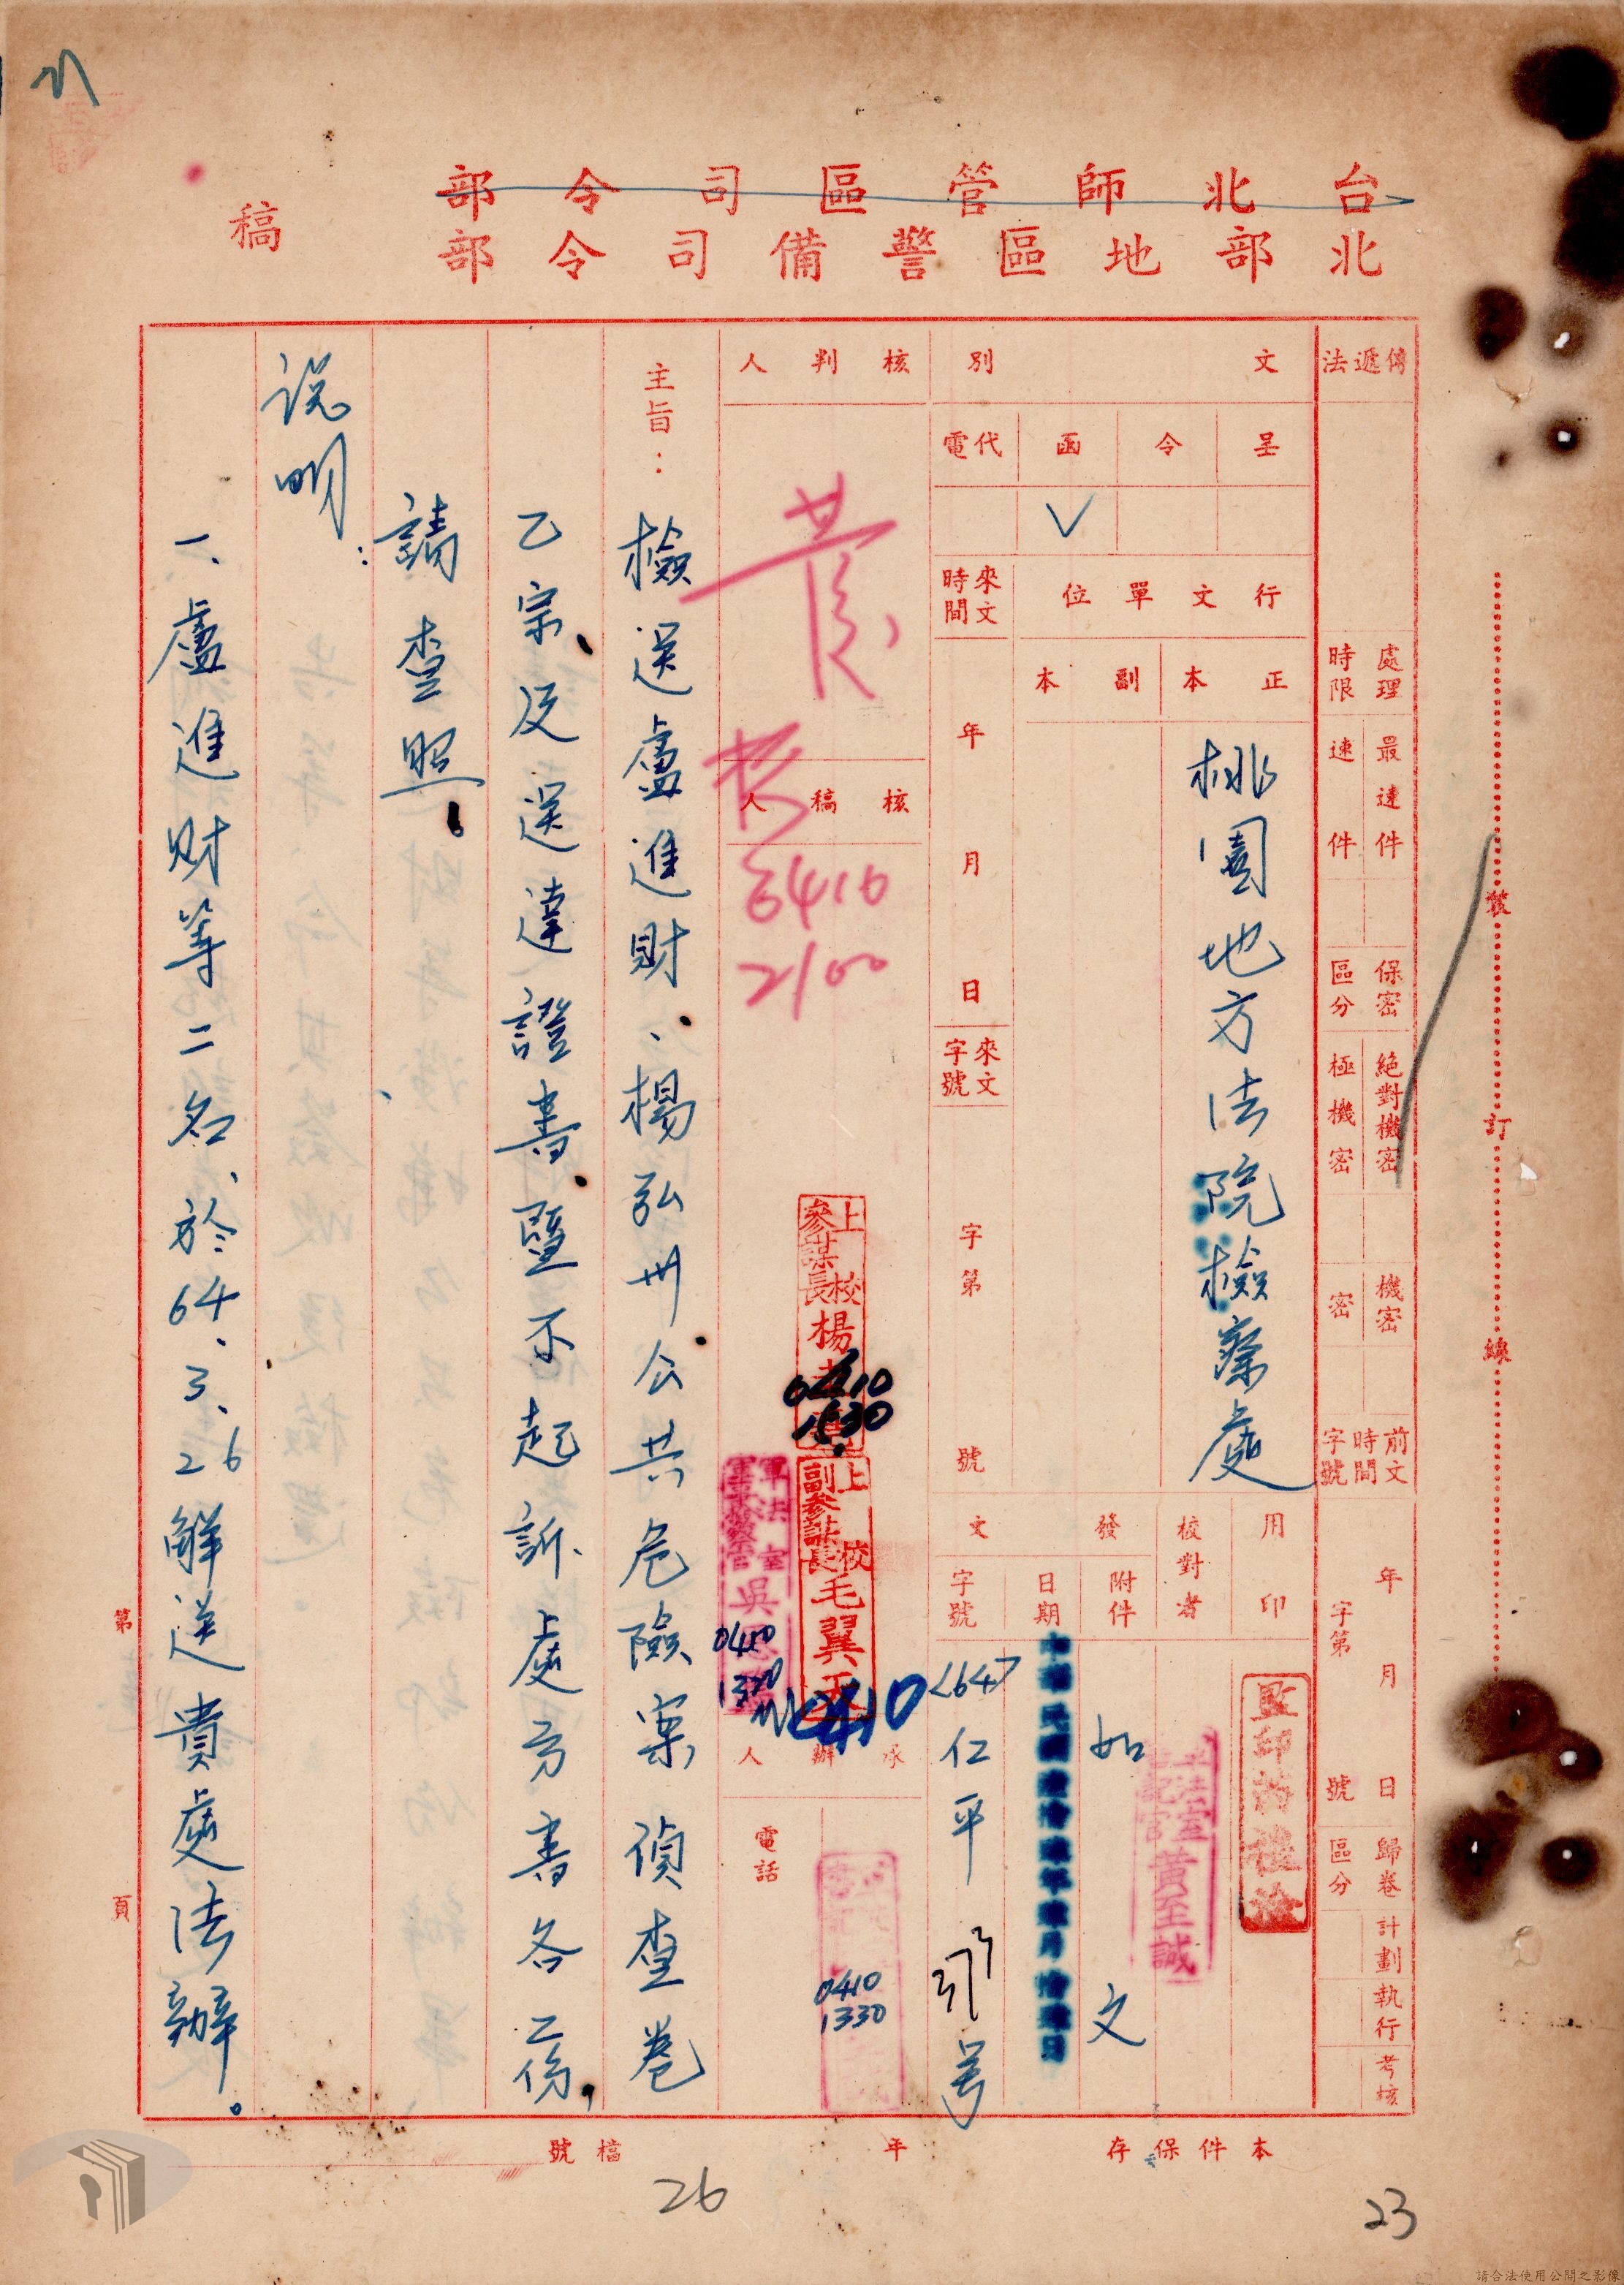 台北師管區司令部
北部地區警備司令部
稿
傳遞法
處理時限
最速件
速件
保密區分
絕對機密
極機密
機密
密
前文時間字號
年月日
字第號
歸卷區分
計劃
執行
考核
文別
呈
令
函
代電
✓
行文單位
正本
副本
桃園地方法院檢察處
來文時間
年月日
來文字號
字第號
用印
校對者
監印
軍法室書記官黃至誠
發文
附件
如文
日期
字號
<64>仁平
号
核判人
核稿人
6410
2100
上校參謀長楊
0410
1530
上校副參謀長毛翼
0410
軍法室
吳
0410
1330
承辦人
電話
0410
1330
主旨：
檢送盧進財、楊弘卅公共危險案偵查卷
乙宗、及送達證書、暨不起訴處分書各二份，
請查照。
說明：
一、盧進財等二名、於64、3、26解送貴處法辦。
第頁
裝訂線
本件保存年
檔號
26
23
請合法使用公開之影像